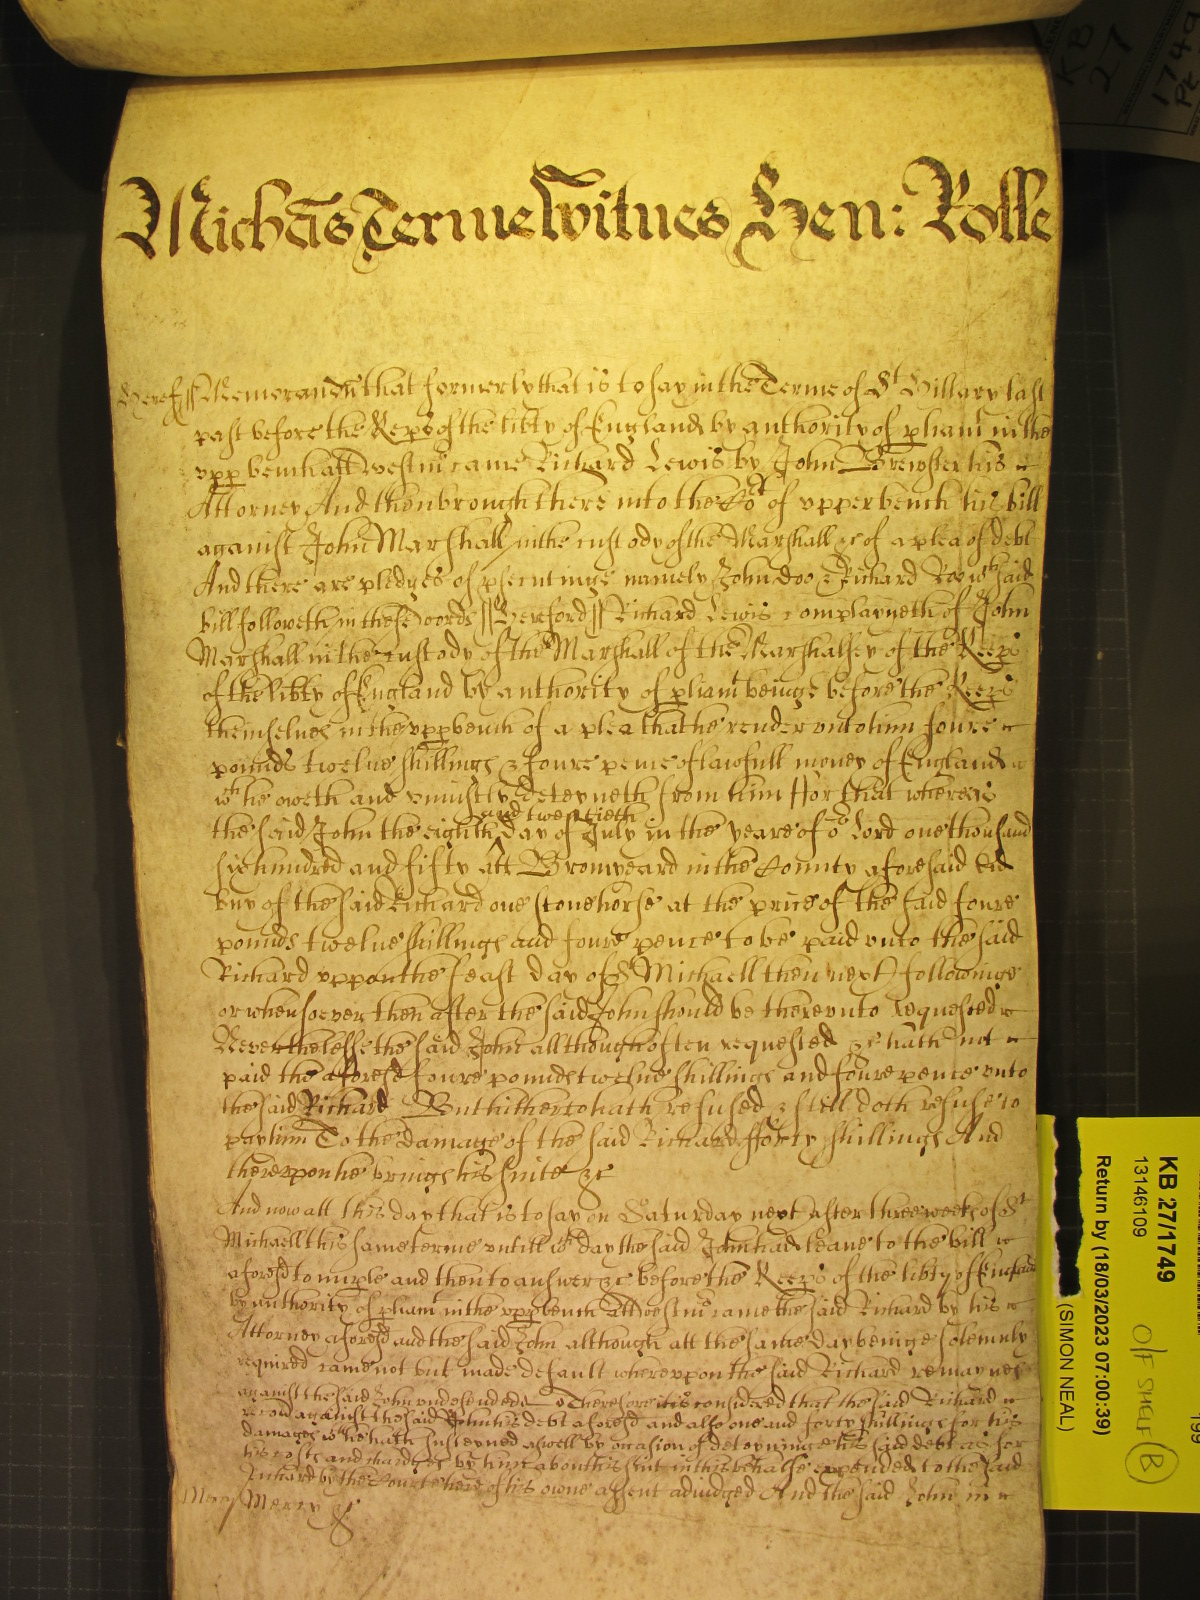 Michais Terme Witnes Hen: Rolle
Heref ss Memorandu that formerly that is to say in the Terme of St Hillary last
past before the Keeps of the libty of England by authority of pliamt in the
vpp bench att Westmr came Richard Lewis by John Brewster his
Attorney And then brought here into the Cot of vpper bench his bill
against John Marshall in the custody of the Marshall &c of a plea of debt
And there are pledges of psecutinge namely John Doo & Richard Roo wch said
bill followeth in these words ss Hereford ss Richard Lewis complayneth of John
Marshall in the custody of the Marshall of the Marshalsey of the Keeps
of the libty of England by authority of pliamt beinge before the Keeps
themselues in the vpp bench of a plea that he render vnto him foure
pounds twelue shillings & foure pence of lawfull money of England
wch he oweth and vniustly deteyneth from him ffor that whereas
and twentieth
the said John the eighth day of July in the yeare of or Lord one thousand
six hundred and fifty att Bromyeard in the County aforesaid did
buy of the said Richard one stone horse at the price of the said foure
pounds twelue shillings and foure pence to be paid vnto the said
Richard vppon the feast day of St Michaell then next followinge
or whensoever then after the said John should be therevnto requested
Neverthelesse the said John allthough often requested &c hath not
paid the aforesd foure pounds twelue shillings and foure pence vnto
the said Richard But hitherto hath refused & still doth refuse to
pay him To the damage of the said Richard fforty shillings And
therevppon he brings his suite &c
And now att this day that is to say on Saturday next after three weeks of St
Michaell this same terme vntill wch day the said John had leaue to the bill
aforesd to imple and then to answer &c before the Keeps of the libty of England
by authority of pliamt in the vpp bench att Westmr came the said Richard by his
Attorney aforesd and the said John although att the same day beinge solemnly
required came not but made default wherevppon the said Richard remaynes
against the said John vndefended Therefore it is considered that the said Richard
recou against the said John his debt aforesd and also one and forty shillings for his
damages wch he hath susteyned aswell by occasion of deteyninge his said debt as for
his costs and chardges by him about his suit in this behalfe expended to the said
Richard by the Courte here of his owne assent adiudged And the said John in
Mercy Mercy &c
KB 27/1749
13146109
Return by (18/03/2023 07:00:39)
(SIMON NEAL)
O/F SHELF B
KB
27
1749
Pt
199